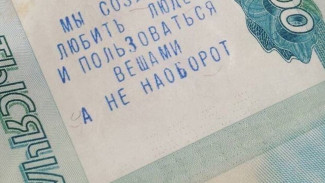 МЫ СОЗ
ЛЮБИТЬ ЛЮДЕ
И ПОЛЬЗОВАТЬСЯ
ВЕЩАМИ
А НЕ НАОБОРОТ